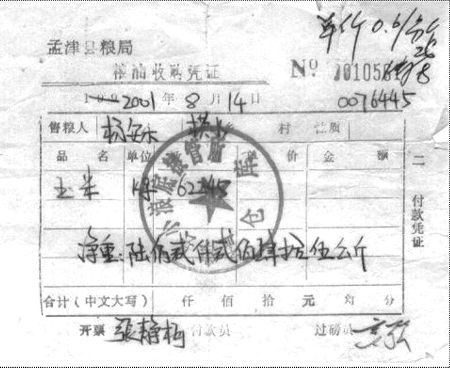 孟津县粮局
单价 0.61/公斤
粮油收购凭证
Nº 0105
2001 年 8 月 14 日
0076445
售粮人 杨 横 村 性质
品 名 单位 价 金 额
玉米 62245
净重: 陆 贰仟贰佰肆拾伍公斤
合计(中文大写) 仟 佰 拾 元 角 分
开票 張静梅 付款员 过磅员
二 付款凭证
粮管所
仓库